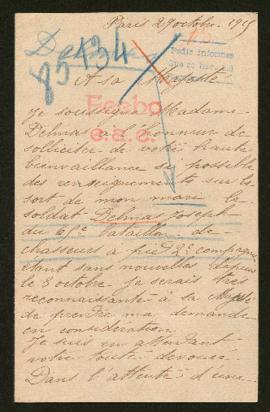 Paris 29 octobre 1915
85434
Pedir informes
A sa Majesté
Recbo
Je soussignée Madame
Delmas a l'honneur de
solliciter de votre haute
bienveillance si possible
des renseignements sur le
sort de mon mari le
soldat Delmas Joseph
du 65e bataillon de
chasseurs à pied 2e compagnie
étant sans nouvelles depuis
le 8 octobre. Je serais très
reconnaissante à sa Majesté
de prendre ma demande
en considération.
Je suis en attendant
votre toute dévouée.
Dans l'attente d'une